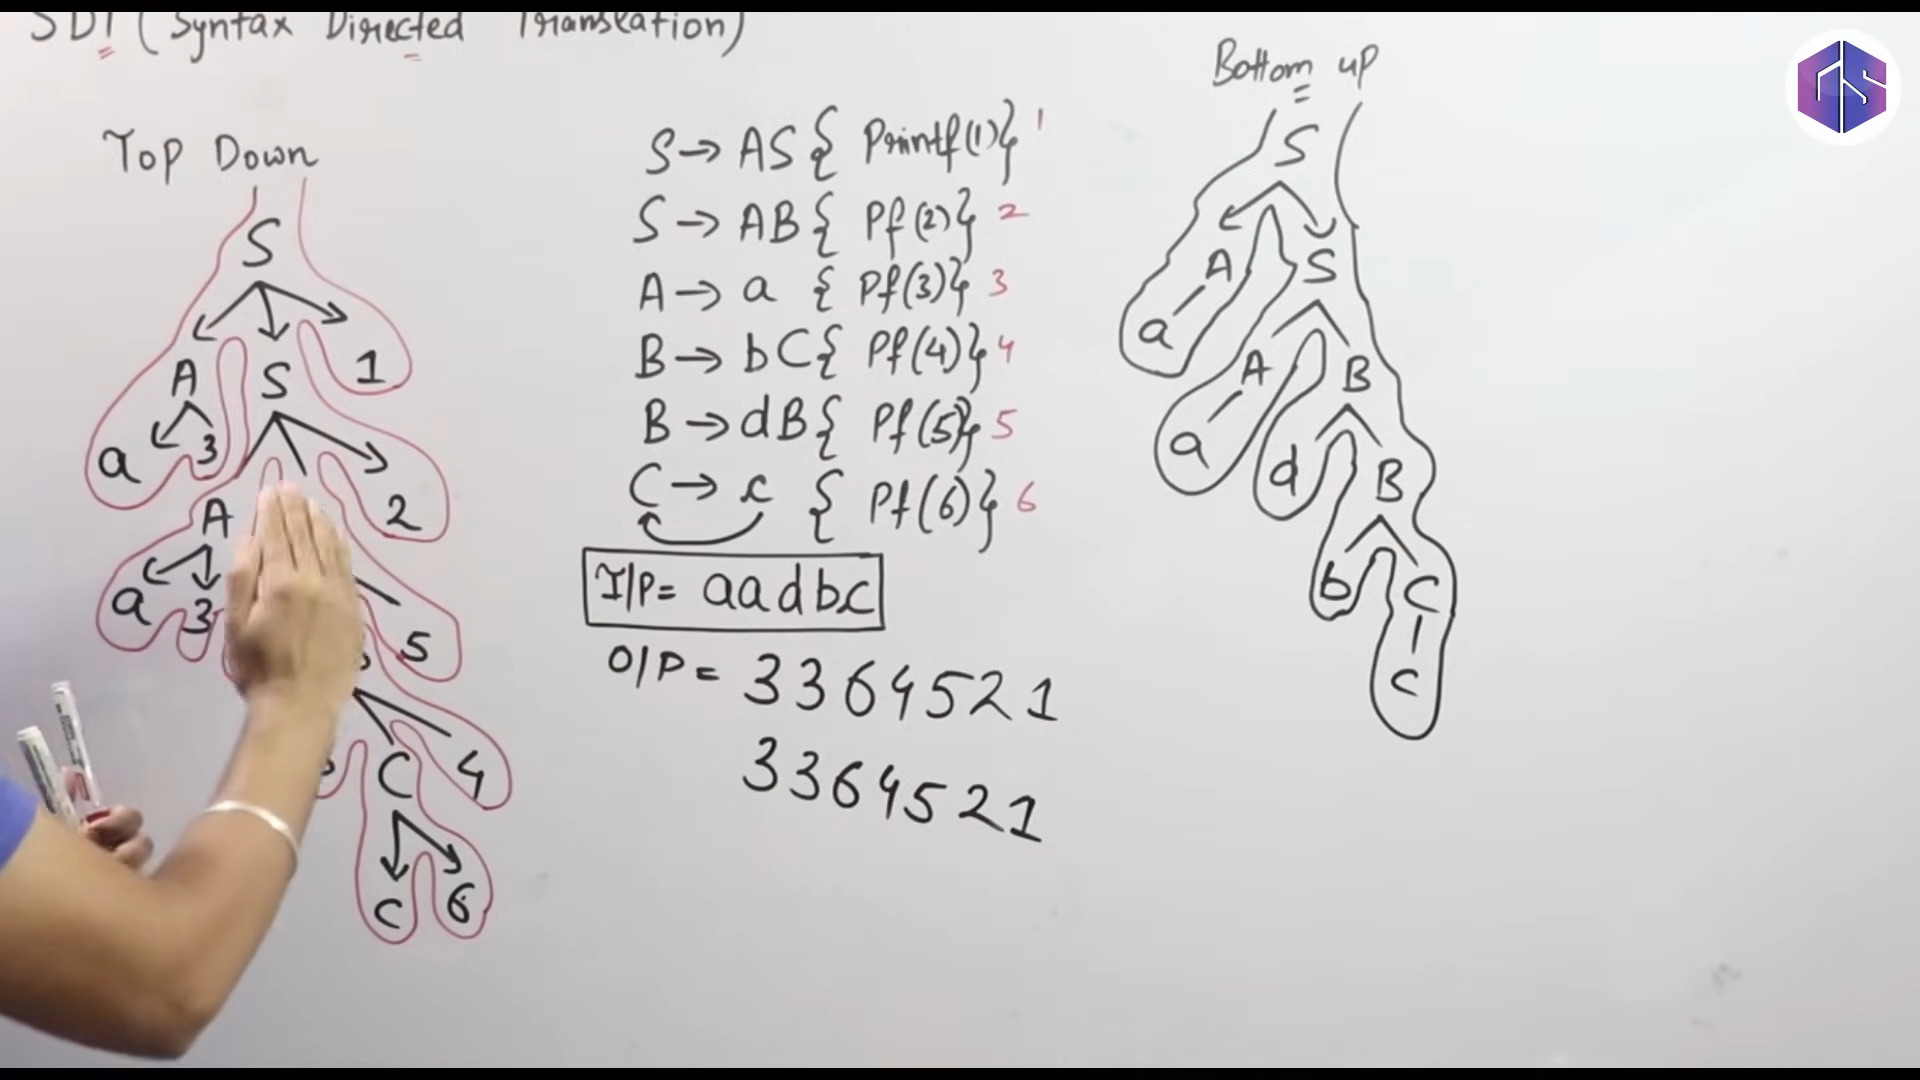 SDT (Syntax Directed Translation)
Top Down
S
A S 1
a 3
A 2
a 3 5
C 4
c 6
S → AS { Printf(1)} 1
S → AB { Pf(2)} 2
A → a { Pf(3)} 3
B → bC { Pf(4)} 4
B → dB { Pf(5)} 5
C → c { Pf(6)} 6
I/P = aadbc
O/P = 3364521
3364521
Bottom up
S
A S
a A B
a d B
b C
c
GS